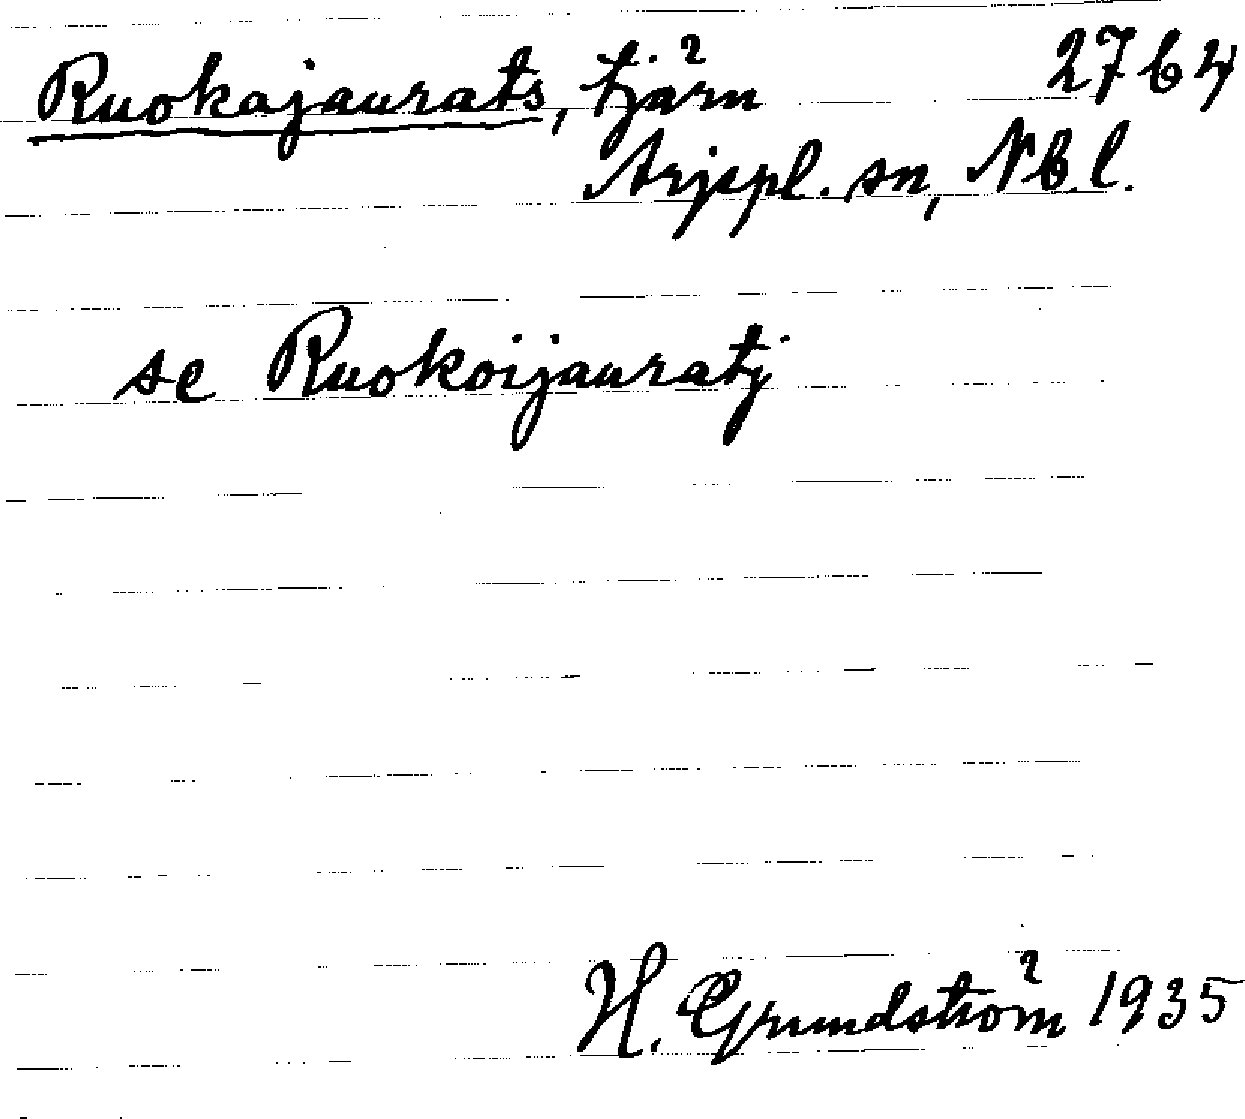 Ruokajaurats, tjärn 2764
Arjepl. sn, Nb.l.
se Ruokoijauratj
H. Grundström 1935